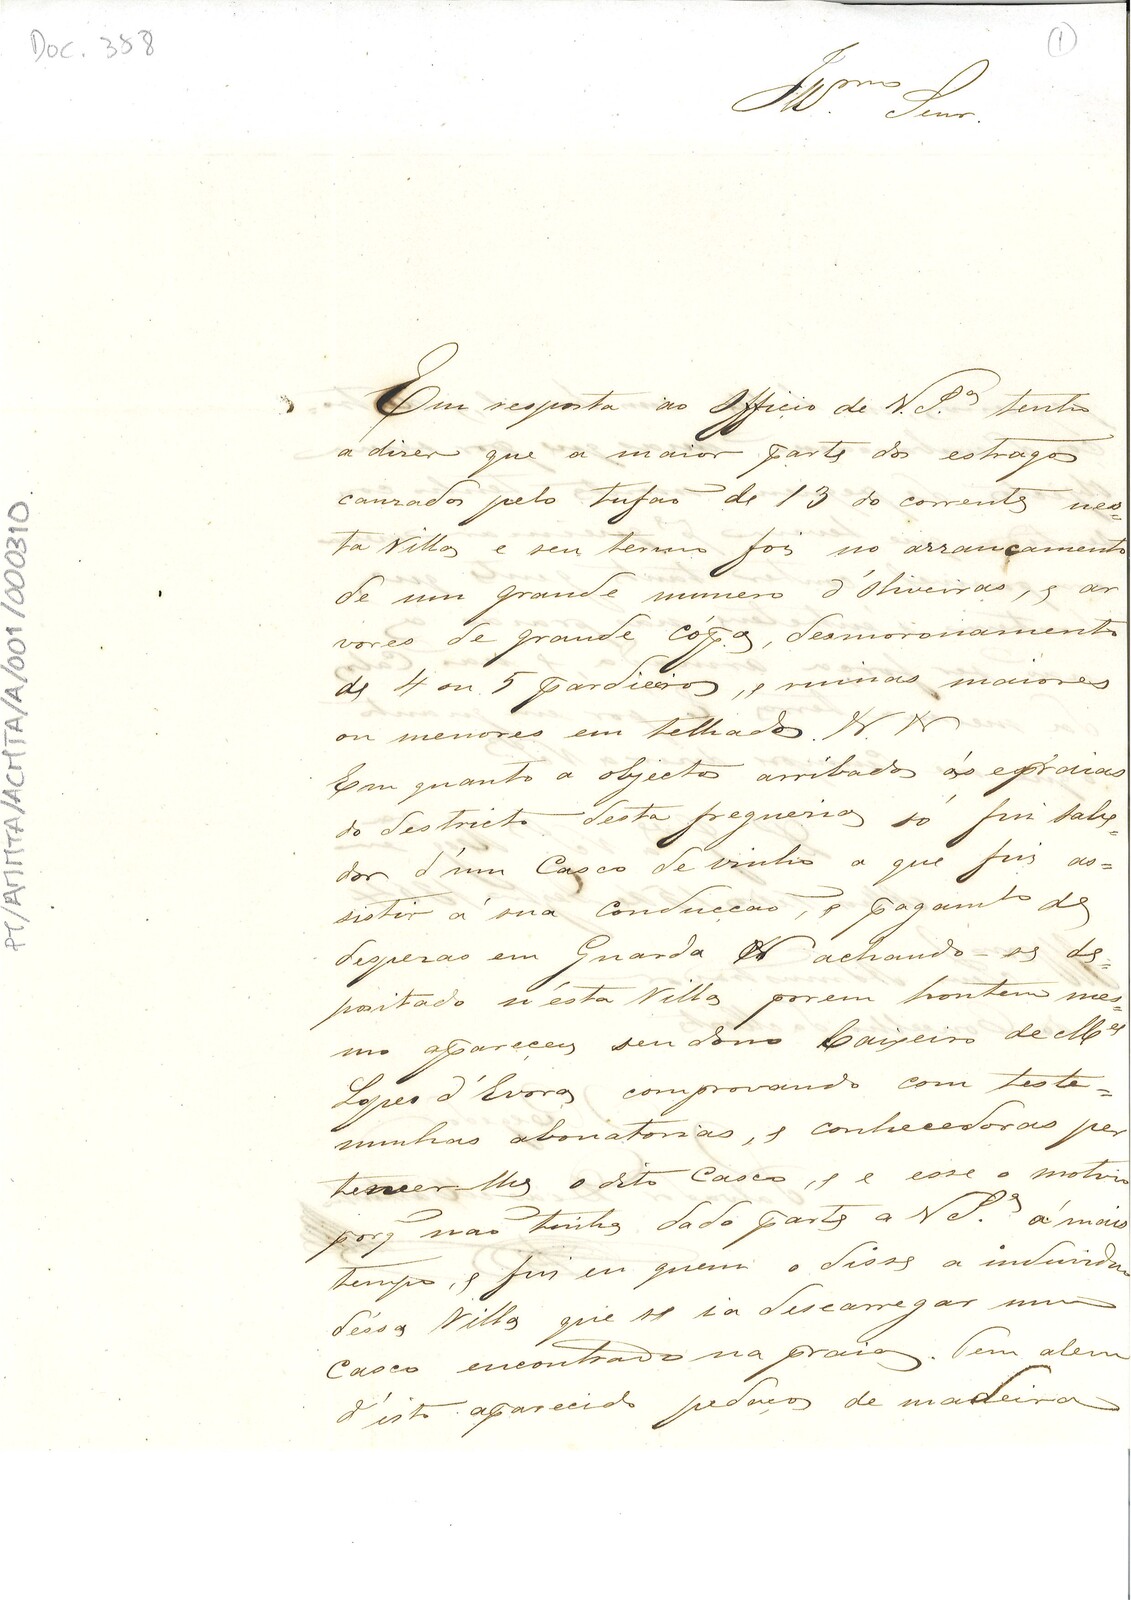 Doc. 358
1
Illmo Senr.
Em resposta ao Officio de V. Sa tenho
a dizer que a maior parte dos estragos
cauzados pelo tufaõ de 13 do corrente nes-
ta Villa e seu termo foi no arrancamento
de um grande numero d'Oliveiras, e ar
vores de grande cópa, desmoronamento
de 4 ou 5 pardieiros, e ruinas maiores
ou menores em telhados
Em quanto a objectos arribados ás praias
do destricto desta freguezia só fui sabe-
dor d'um Casco de vinho a que fui as-
sistir á sua conducçaõ, e pagamto de
despezas em Guarda achando-se de-
pozitado n'esta Villa porem hontem mes-
mo apareceu seu dono Caixeiro de Mel
Lopes d'Evora comprovando com teste-
munhas abonatorias, e conhecedoras per
tencer-lhe o dito Casco, e e esse o motivo
porq naõ tenha dado parte a V Sa á mais
tempo, e fui eu quem o disse a individuo
déssa Villa que se ia descarregar um
Casco encontrado na praia. Tem alem
d'isto aparecido pedaços de madeira
PT/AMMTA/ACMTA/A/001/000310